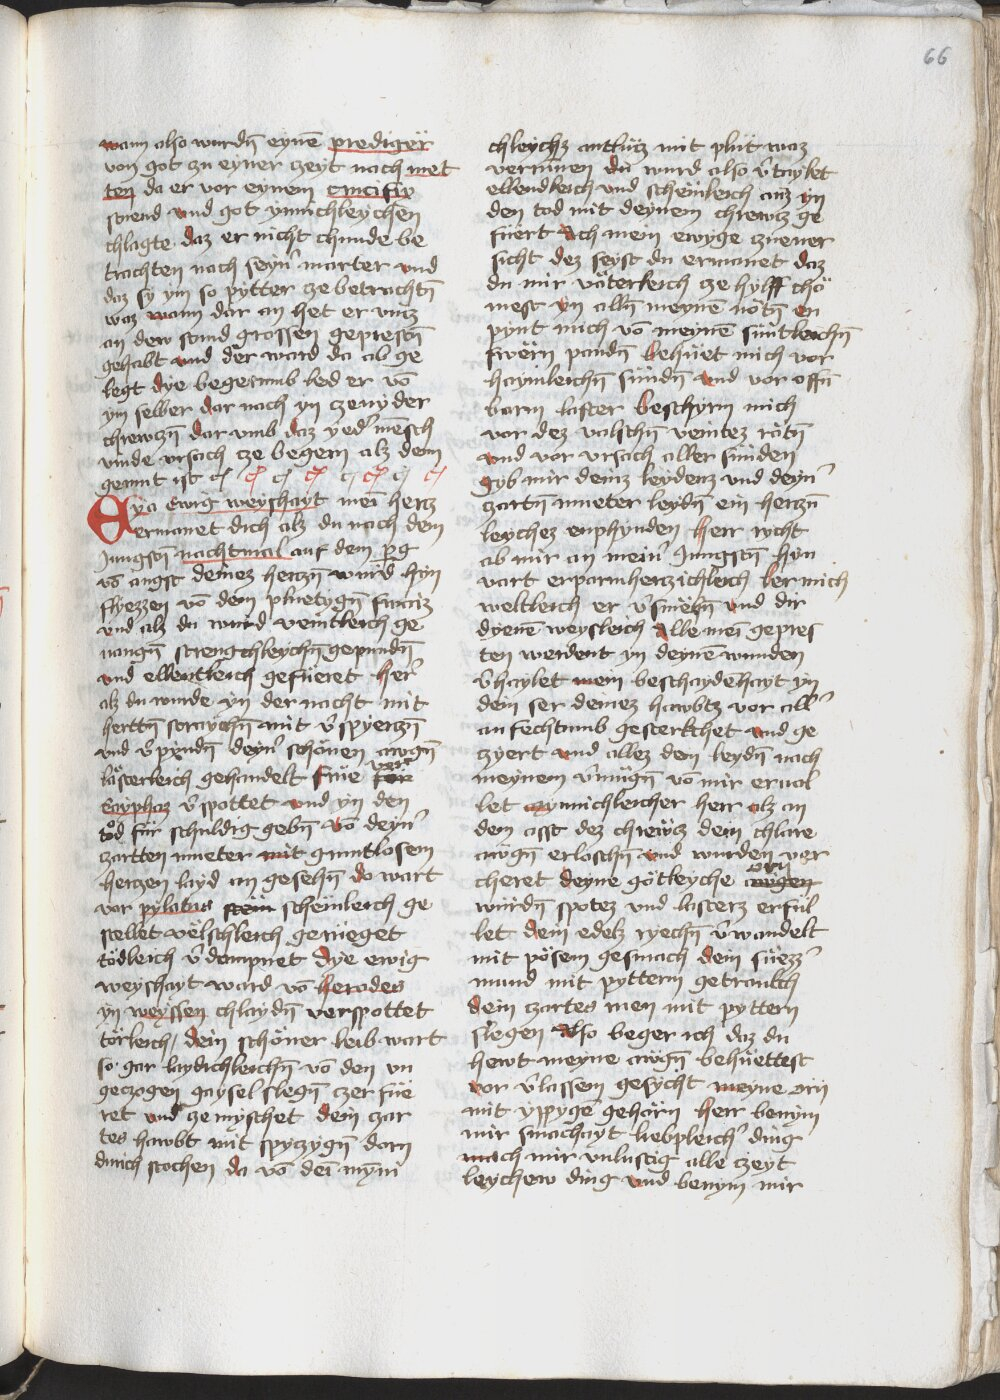 66
wann also wurdn̄ eynē prediger
von got zu eyner czeyt nach met
ten da er vor eynem crucifix
stuend vnd got ynnichleychen
chlagte daz er nicht chunde be
trachten nach seynr̄ marter vnd
daz sy ym so pytter cze betrachtn̄
waz wann dar an het er vncz
an dew stund grossen geprestn̄
gehabt vnd der ward da ab ge
legt dye begerumb led er vō
ym selber dar nach yn czenyder
chrewczn̄ dar vmb daz yedr̄ mēsch
vinde vrsach cze begern alz dem
genut ist
Eya ewig weyshayt mei hercz
ermanet dich alz du nach dem
Jungstn̄ nachtmal auf dem pg
vō angst deinez herczn̄ wurd hyn
flyezzen vō dem pluetygn̄ swaiz
vnd alz du wurd veintleich ge
uangn̄ strengchleychn̄ gepundn̄
vnd ellentleich gefüeret her̄
alz du wurde yn der nacht mit
herttn̄ straychn̄ mit v̄spyeczn̄
vnd v̄pyndn̄ deynr̄ schönen awgn̄
lästerleich gehandelt frue vor
Cayphaz v̄spottet vnd yn den
tod für schuldig gebn̄ vō deynr̄
czartten mueter mit gruntlosem
herczen layd an gesehn̄ do wart
vor pylatus stein scheinleich ge
stellet välschleich gerüeget
tödleich v̄dampnet dye ewig
weyshayt ward vō herodes
yn weyssen chlaydn̄ verspottet
törleich dein schöner leib wart
so gar laydichleichn̄ vō den vn
geczogen gaysel slegn̄ czer fue
ret vnd ze myschet dein zar
tes hawbt mit spyczygn̄ dorn
durich stochen da vō dei mȳni
chleychz antlücz mit plüt waz
verrunen du wurd also v̄taylet
ellendleich vnd scheinleich auz yn
den tod mit deynem chrewcz ge
füert Ach mein ewyge czuever
sicht dez seyst du ermanet daz
du mir väterleich cze hylff chö
mest yn alln̄ meynē nötn̄ en
pynt mich vō meynē süntleichn̄
swärn pandn̄ behüet mich vor
haymleichn̄ sündn̄ vnd vor offn̄
barn laster beschyrm mich
vor dez valschn̄ veintez rätn̄
vnd vor vrsach aller sünden
gyb mir deinz leydenz vnd deynr̄
zartn̄ mueter leydn̄ ein herczn̄
leychez enphynden herr rycht
ab mir an meinr̄ Jungstn̄ hyn
vart erparmherczichleich ler mich
weltleich er v̄smähn̄ vnd dir
dyenē weysleich Alle mei gepres
ten werdent yn deynē wunden
v̄haylet mein beschaydēhayt yn
dein ser deinez hawbtz vor allr̄
anfechtumb gesterkchet vnd ge
czyert vnd allez dem leydn̄ nach
meynem v̄mügn̄ vō mir ervol
let mynnichleicher herr alz an
dem asst dez chrewcz dein chlare
awgn̄ erloschn̄ vnd wurden ver
cheret deyne götleyche orn
würdn̄ spotez vnd lasterz erfül
let dein edelz ryechn̄ v̄wandelt
mit pösem gesmach dein süezzr̄
mund mit pytterm getrankch
dein czartes men mit pyttern
slegen Also beger ich daz du
hewt meyne awgn̄ behüettest
vor v̄lassem gesycht meyne orn
mit yppyge gehörn herr benym
mir smachayt lieplleichr̄ ding
mach mir vnlustig alle czeyt
leychew ding vnd benym mir